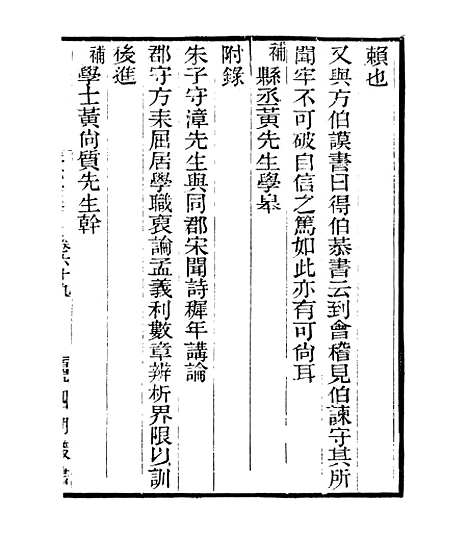 賴也
又與方伯謨書曰得伯恭書云到會稽見伯諫守其所
聞牢不可破自信之篤如此亦有可尙耳
補縣丞黃先生學皋
附錄
朱子守漳先生與同郡宋聞詩穉年講論
郡守方耒屈居學職裒論孟義利數章辨析界限以訓
後進
補學士黃尙質先生幹
卷六十九